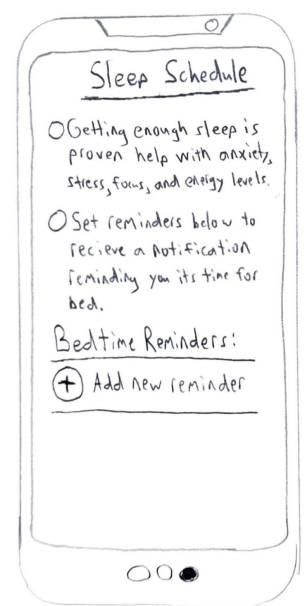 Sleep Schedule
Getting enough sleep is
proven help with anxiety,
stress, focus, and energy levels.
Set reminders below to
recieve a notification
reminding you its time for
bed.
Bedtime Reminders:
+ Add new reminder